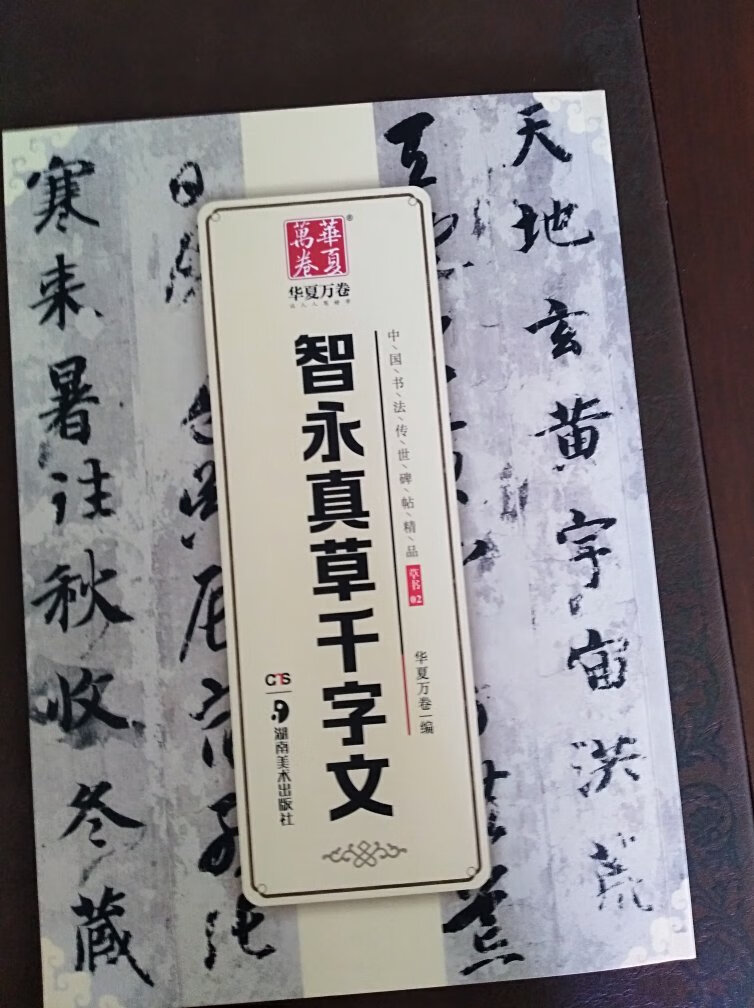 天地玄黄宇宙洪荒
寒来暑往秋收冬藏
華夏
萬卷
®
华夏万卷
智永真草千字文
中国书法传世碑帖精品
草书02
华夏万卷 编
CTS
湖南美术出版社